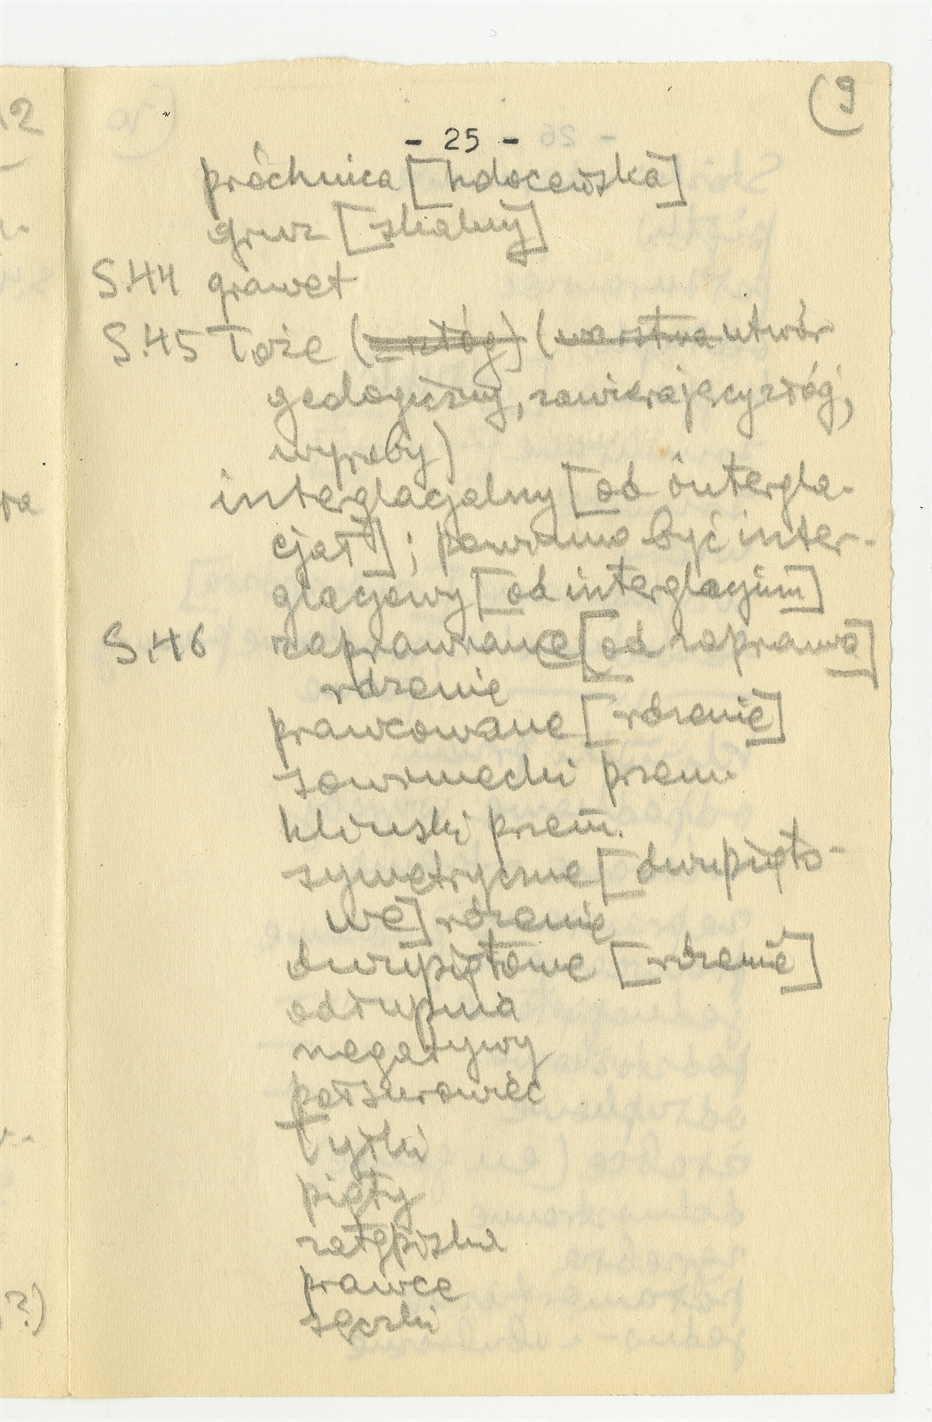 (9
- 25 -
próchnica [holoceńska]
gruz [skalny]
S.44 grawet
S.45 Łoże (złóg) (warstwa utwór
geologiczny, zawierający złóg,
wyroby)
interglacjalny [od intergla-
cjał]; powinno być inter-
glacjowy [od interglacjum]
S.46 zaprawiane [od zaprawa]
rdzenie
prawcowane [rdzenie]
szwimecki przem.
kliński przem.
symetryczne [dwupięto-
we] rdzenie
dwupiętowe [rdzenie]
odłupnia
negatywy
półsurowiec
Tyłki
pięty
zatępiska
prawce
sęczki